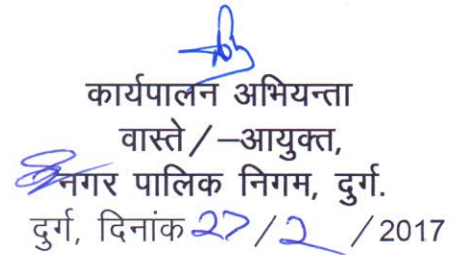 कार्यपालन अभियन्ता
वास्ते/–आयुक्त,
नगर पालिक निगम, दुर्ग.
दुर्ग, दिनांक 27/2 /2017